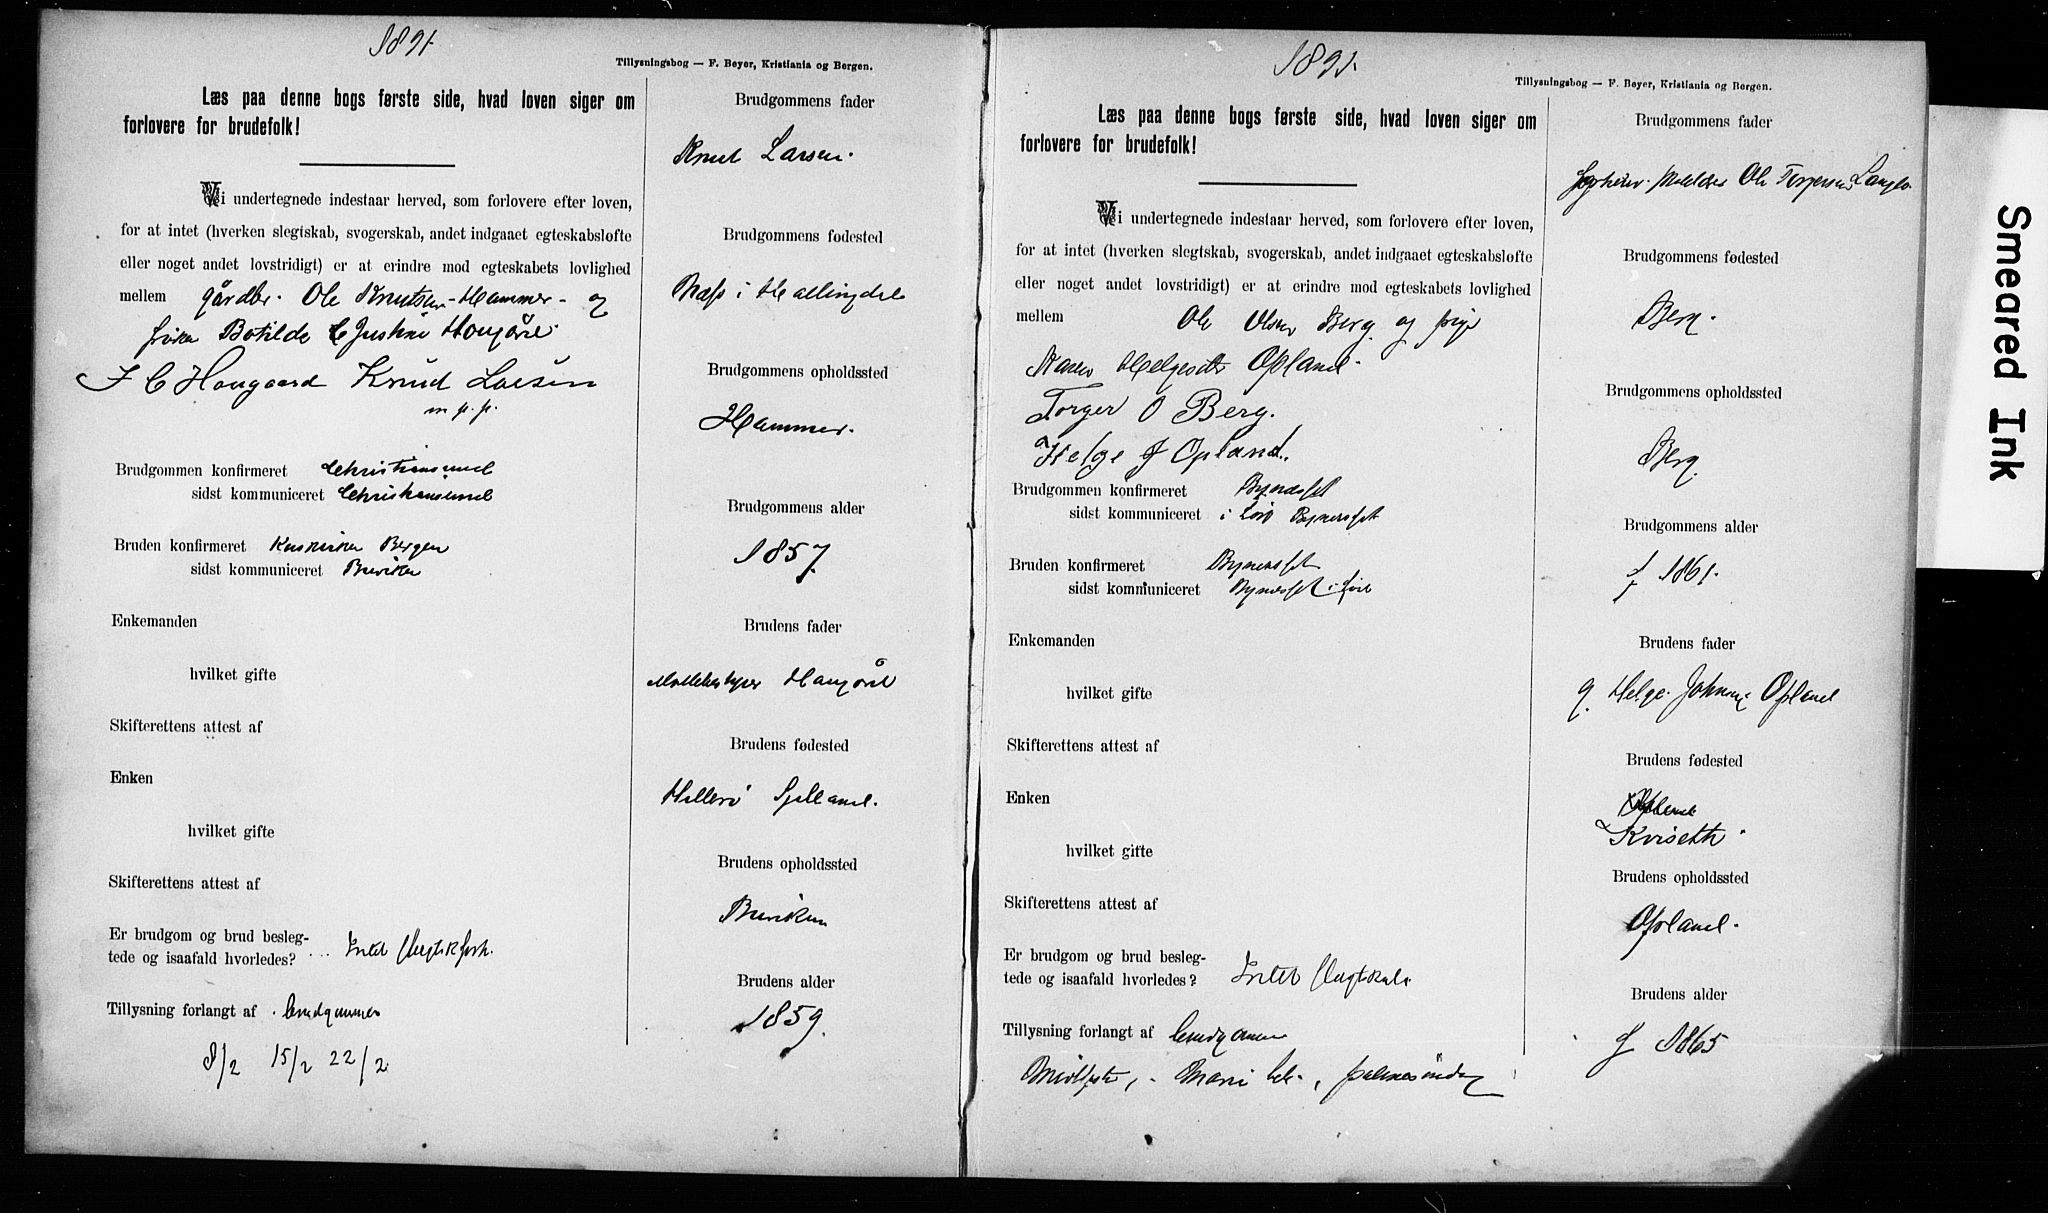 1891.
Tillysningsbog — F. Beyer, Kristiania og Bergen.
Læs paa denne bogs første side, hvad loven siger om
forlovere for brudefolk!
Vi undertegnede indestaar herved, som forlovere efter loven,
for at intet (hverken slegtskab, svogerskab, andet indgaaet egteskabsløfte
eller noget andet lovstridigt) er at erindre mod egteskabets lovlighed
mellem Ole Knutsen Hammer og
Botilde Justine Hougård
J C Hougaard Knud Larsen
m. p. p.
Brudgommen konfirmeret Christianssund
sidst kommuniceret Christianssund
Bruden konfirmeret Bergen
sidst kommuniceret Buviken
Enkemanden
hvilket gifte
Skifterettens attest af
Enken
hvilket gifte
Skifterettens attest af
Er brudgom og brud beslegtede
og isaafald hvorledes? ... Intet
Tillysning forlangt af brudgommen
8/2 15/2 22/2
Brudgommens fader
Knud Larsen.
Brudgommens fødested
Næss i Hallingdal
Brudgommens opholdssted
Hammer.
Brudgommens alder
1857.
Brudens fader
Hougård
Brudens fødested
Sjælland.
Brudens opholdssted
Buviken
Brudens alder
1859.
1891.
Tillysningsbog — F. Beyer, Kristiania og Bergen.
Læs paa denne bogs første side, hvad loven siger om
forlovere for brudefolk!
Vi undertegnede indestaar herved, som forlovere efter loven,
for at intet (hverken slegtskab, svogerskab, andet indgaaet egteskabsløfte
eller noget andet lovstridigt) er at erindre mod egteskabets lovlighed
mellem Ole Olsen Berg og pige
Karen Helgesdtr Opland.
Torger O Berg.
Helge J Opland.
Brudgommen konfirmeret Bynesset
sidst kommuniceret i Bynesset
Bruden konfirmeret Bynesset
sidst kommuniceret Bynesset i
Enkemanden
hvilket gifte
Skifterettens attest af
Enken
hvilket gifte
Skifterettens attest af
Er brudgom og brud beslegtede
og isaafald hvorledes? Intet slegtskab
Tillysning forlangt af brudgommen
Midfaste, Marie
Brudgommens fader
Ole Torgersen
Brudgommens fødested
Berg.
Brudgommens opholdssted
Berg.
Brudgommens alder
f 1861.
Brudens fader
g. Helge Johnsen Opland
Brudens fødested
Kviseth
Brudens opholdssted
Opland.
Brudens alder
f 1865
Smeared Ink